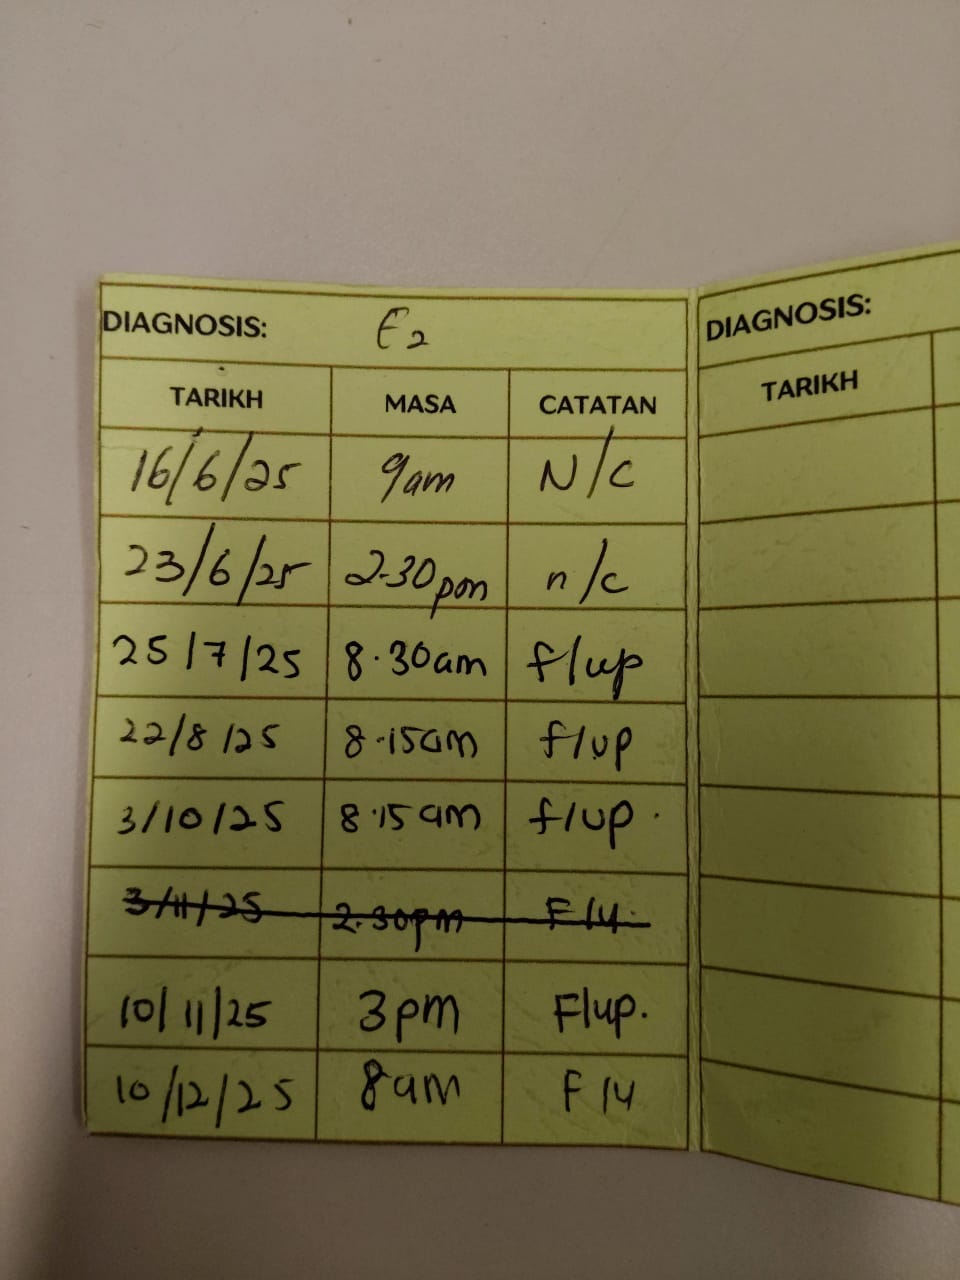 DIAGNOSIS: E2
TARIKH MASA CATATAN
16/6/25 9am N/C
23/6/25 2.30pm n/c
25/7/25 8.30am f/up
22/8/25 8.15am f/up
3/10/25 8.15am f/up.
3/11/25 2.30pm F/U.
10/11/25 3pm F/up.
10/12/25 8am F/U
DIAGNOSIS:
TARIKH